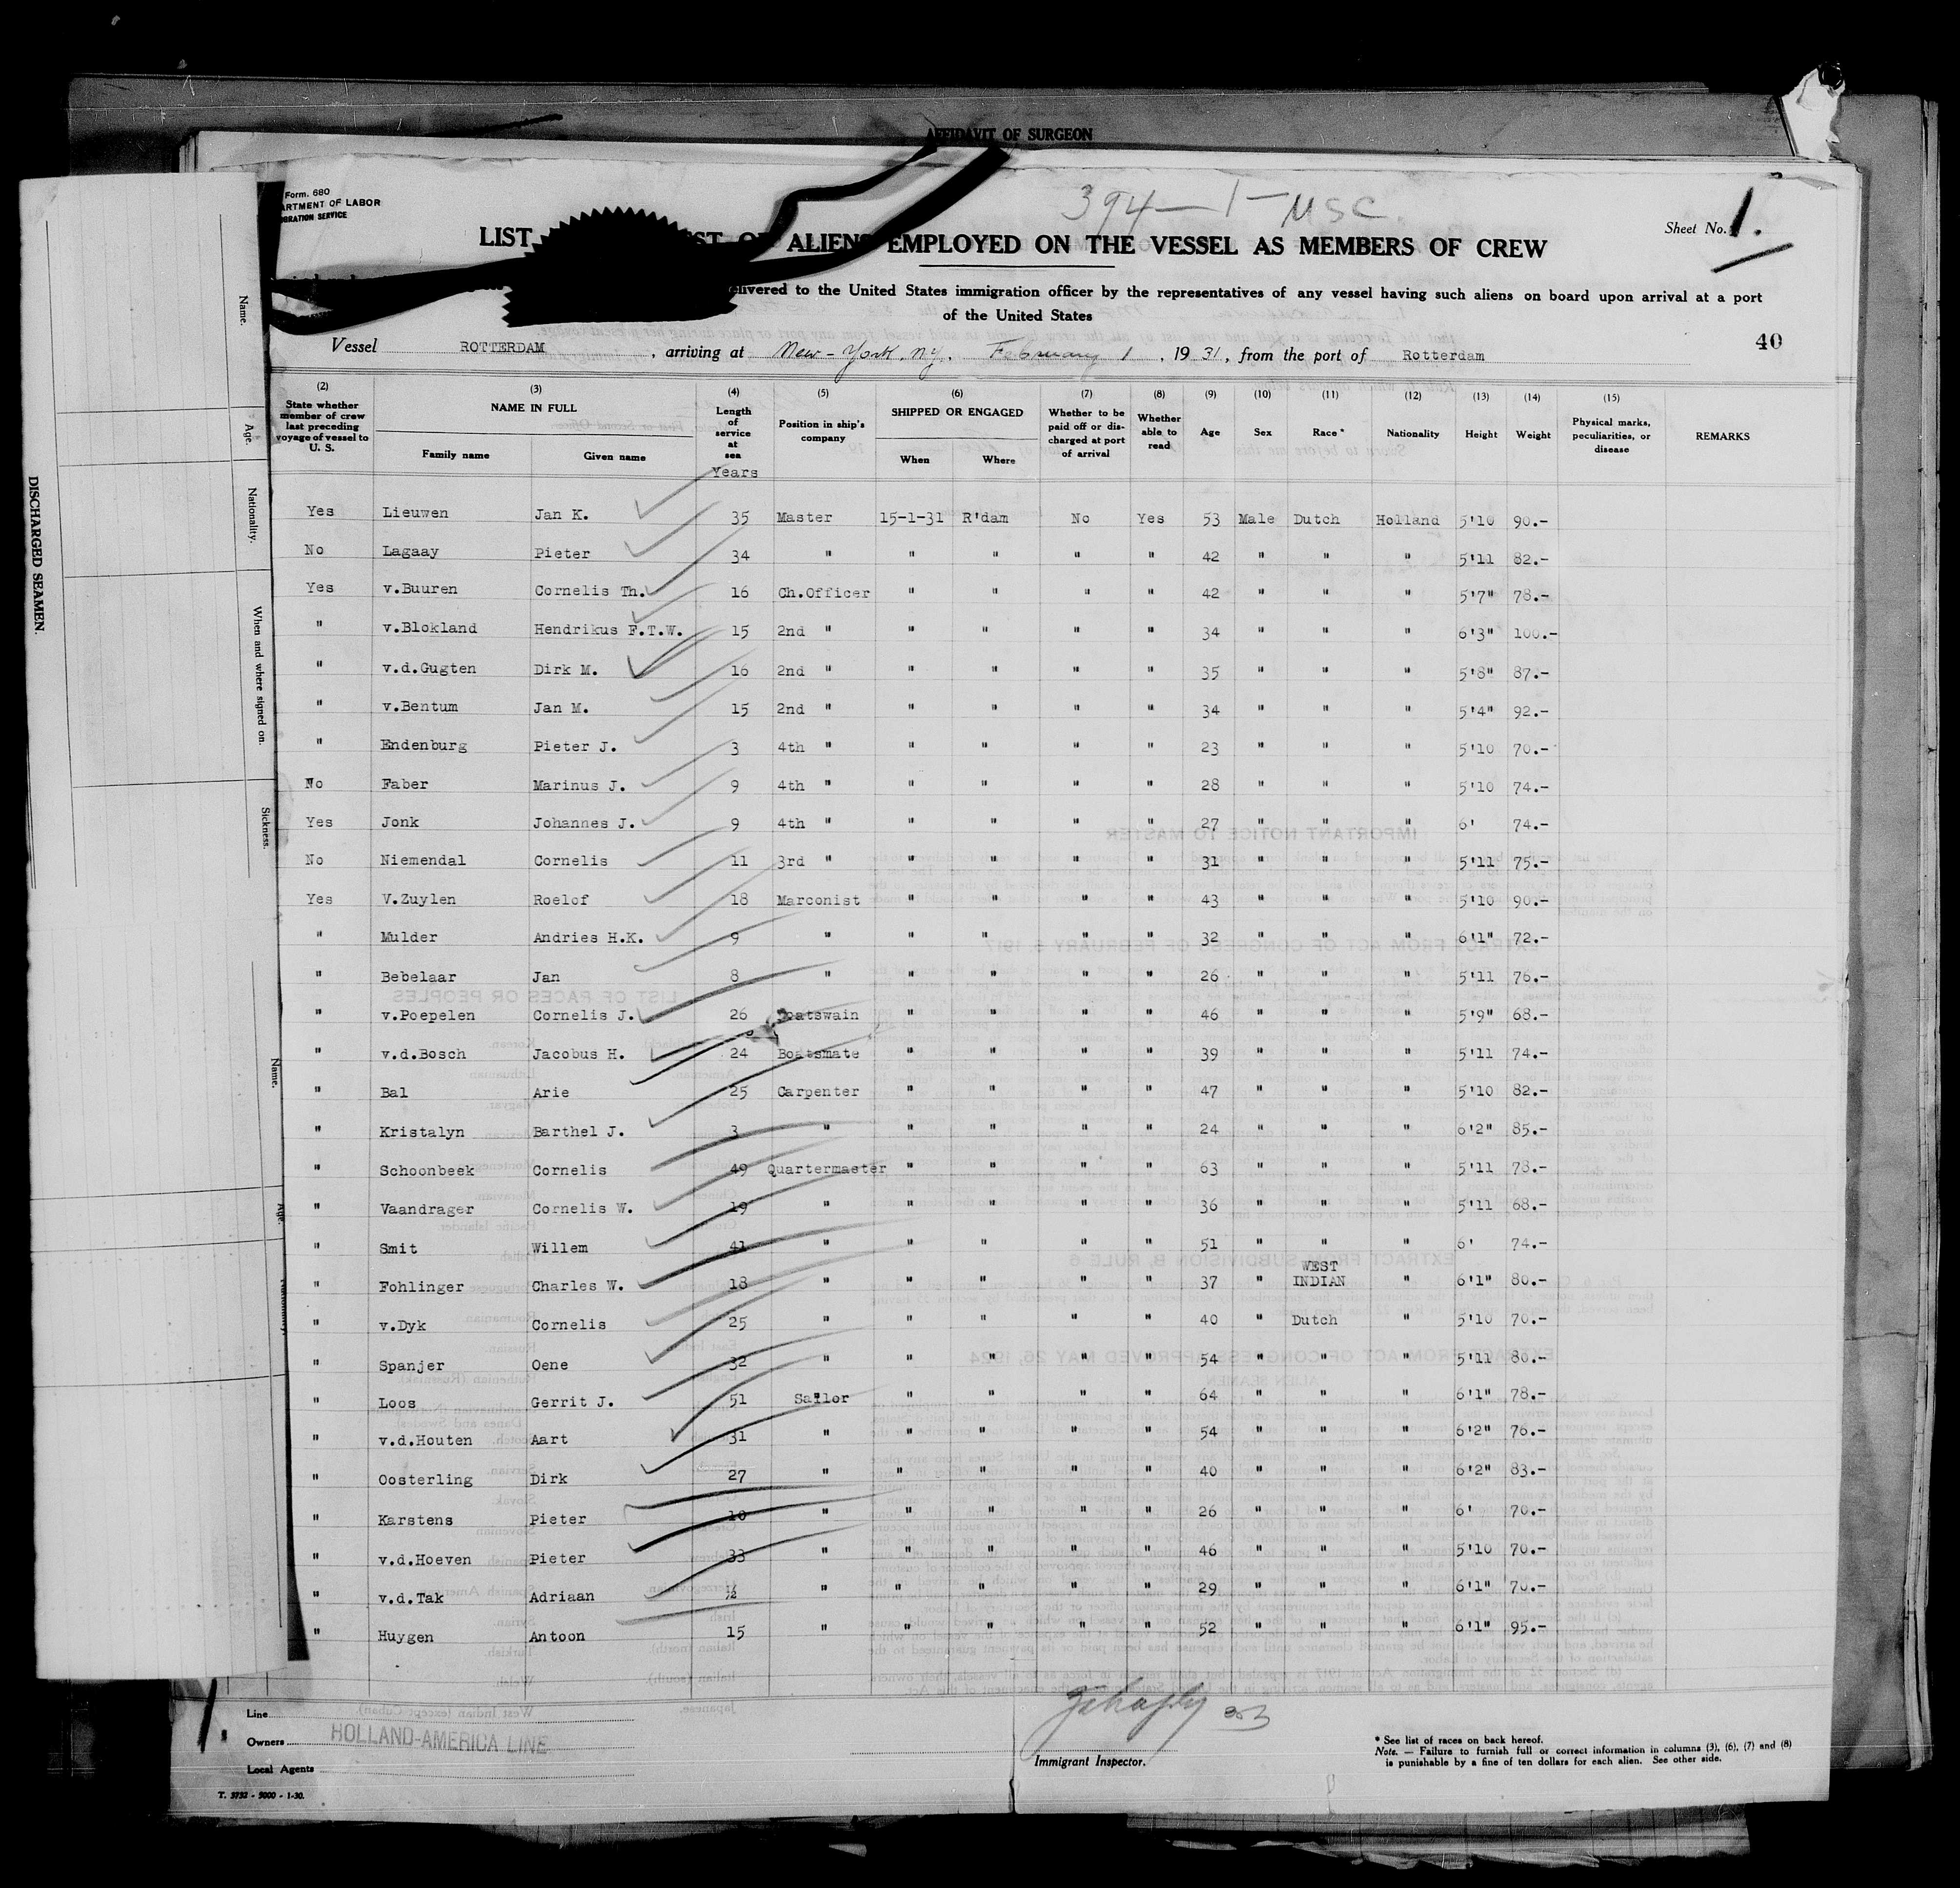 AFFIDAVIT OF SURGEON
Form. 680
ARTMENT OF LABOR
GRATION SERVICE
394-1-MSC.
Sheet No. 1.
LIST ST OF ALIENS EMPLOYED ON THE VESSEL AS MEMBERS OF CREW
elivered to the United States immigration officer by the representatives of any vessel having such aliens on board upon arrival at a port
of the United States
40
Vessel ROTTERDAM, arriving at New-York, N.Y. February 1, 1931, from the port of Rotterdam
(2) (3) (4) (5) (6) (7) (8) (9) (10) (11) (12) (13) (14) (15)
State whether member of crew last preceding voyage of vessel to U. S. NAME IN FULL Family name Given name Length of service at sea Position in ship's company SHIPPED OR ENGAGED When Where Whether to be paid off or discharged at port of arrival Whether able to read Age Sex Race * Nationality Height Weight Physical marks, peculiarities, or disease REMARKS
Years
Yes Lieuwen Jan K. 35 Master 15-1-31 R'dam No Yes 53 Male Dutch Holland 5'10 90.-
No Lagaay Pieter 34 " " " " " 42 " " " 5'11 82.-
Yes v.Buuren Cornelis Th. 16 Ch.Officer " " " " 42 " " " 5'7" 78.-
" v.Blokland Hendrikus F.T.W. 15 2nd " " " " " 34 " " " 6'3" 100.-
" v.d.Gugten Dirk M. 16 2nd " " " " " 35 " " " 5'8" 87.-
" v.Bentum Jan M. 15 2nd " " " " " 34 " " " 5'4" 92.-
" Endenburg Pieter J. 3 4th " " " " " 23 " " " 5'10 70.-
No Faber Marinus J. 9 4th " " " " " 28 " " " 5'10 74.-
Yes Jonk Johannes J. 9 4th " " " " " 27 " " " 6' 74.-
No Niemendal Cornelis 11 3rd " " " " " 31 " " " 5'11 75.-
Yes V.Zuylen Roelof 18 Marconist " " " " 43 " " " 5'10 90.-
" Mulder Andries H.K. 9 " " " " " 32 " " " 6'1" 72.-
" Bebelaar Jan 8 " " " " " 26 " " " 5'11 76.-
" v.Poepelen Cornelis J. 26 Boatswain " " " " 46 " " " 5'9" 68.-
" v.d.Bosch Jacobus H. 24 Boatsmate " " " " 39 " " " 5'11 74.-
" Bal Arie 25 Carpenter " " " " 47 " " " 5'10 82.-
" Kristalyn Barthel J. 3 " " " " " 24 " " " 6'2" 85.-
" Schoonbeek Cornelis 49 Quartermaster " " " " 63 " " " 5'11 78.-
" Vaandrager Cornelis W. 19 " " " " " 36 " " " 5'11 68.-
" Smit Willem 41 " " " " " 51 " " " 6' 74.-
" Fohlinger Charles W. 18 " " " " " 37 " WEST INDIAN " 6'1" 80.-
" v.Dyk Cornelis 25 " " " " " 40 " Dutch " 5'10 70.-
" Spanjer Oene 32 " " " " " 54 " " " 5'11 80.-
" Loos Gerrit J. 51 Sailor " " " " 64 " " " 6'1" 78.-
" v.d.Houten Aart 31 " " " " " 54 " " " 6'2" 76.-
" Oosterling Dirk 27 " " " " " 40 " " " 6'2" 83.-
" Karstens Pieter 10 " " " " " 26 " " " 6' 70.-
" v.d.Hoeven Pieter 33 " " " " " 46 " " " 5'10 70.-
" v.d.Tak Adriaan ½ " " " " " 29 " " " 6'1" 70.-
" Huygen Antoon 15 " " " " " 52 " " " 6'1" 95.-
Line
Owners HOLLAND-AMERICA LINE
Local Agents
T. 3732 - 5000 - 1-30.
Immigrant Inspector.
* See list of races on back hereof.
Note. — Failure to furnish full or correct information in columns (3), (6), (7) and (8)
is punishable by a fine of ten dollars for each alien. See other side.
DISCHARGED SEAMEN.
Name.
Age.
Nationality.
When and where signed on.
Sickness.
Name.
Age.